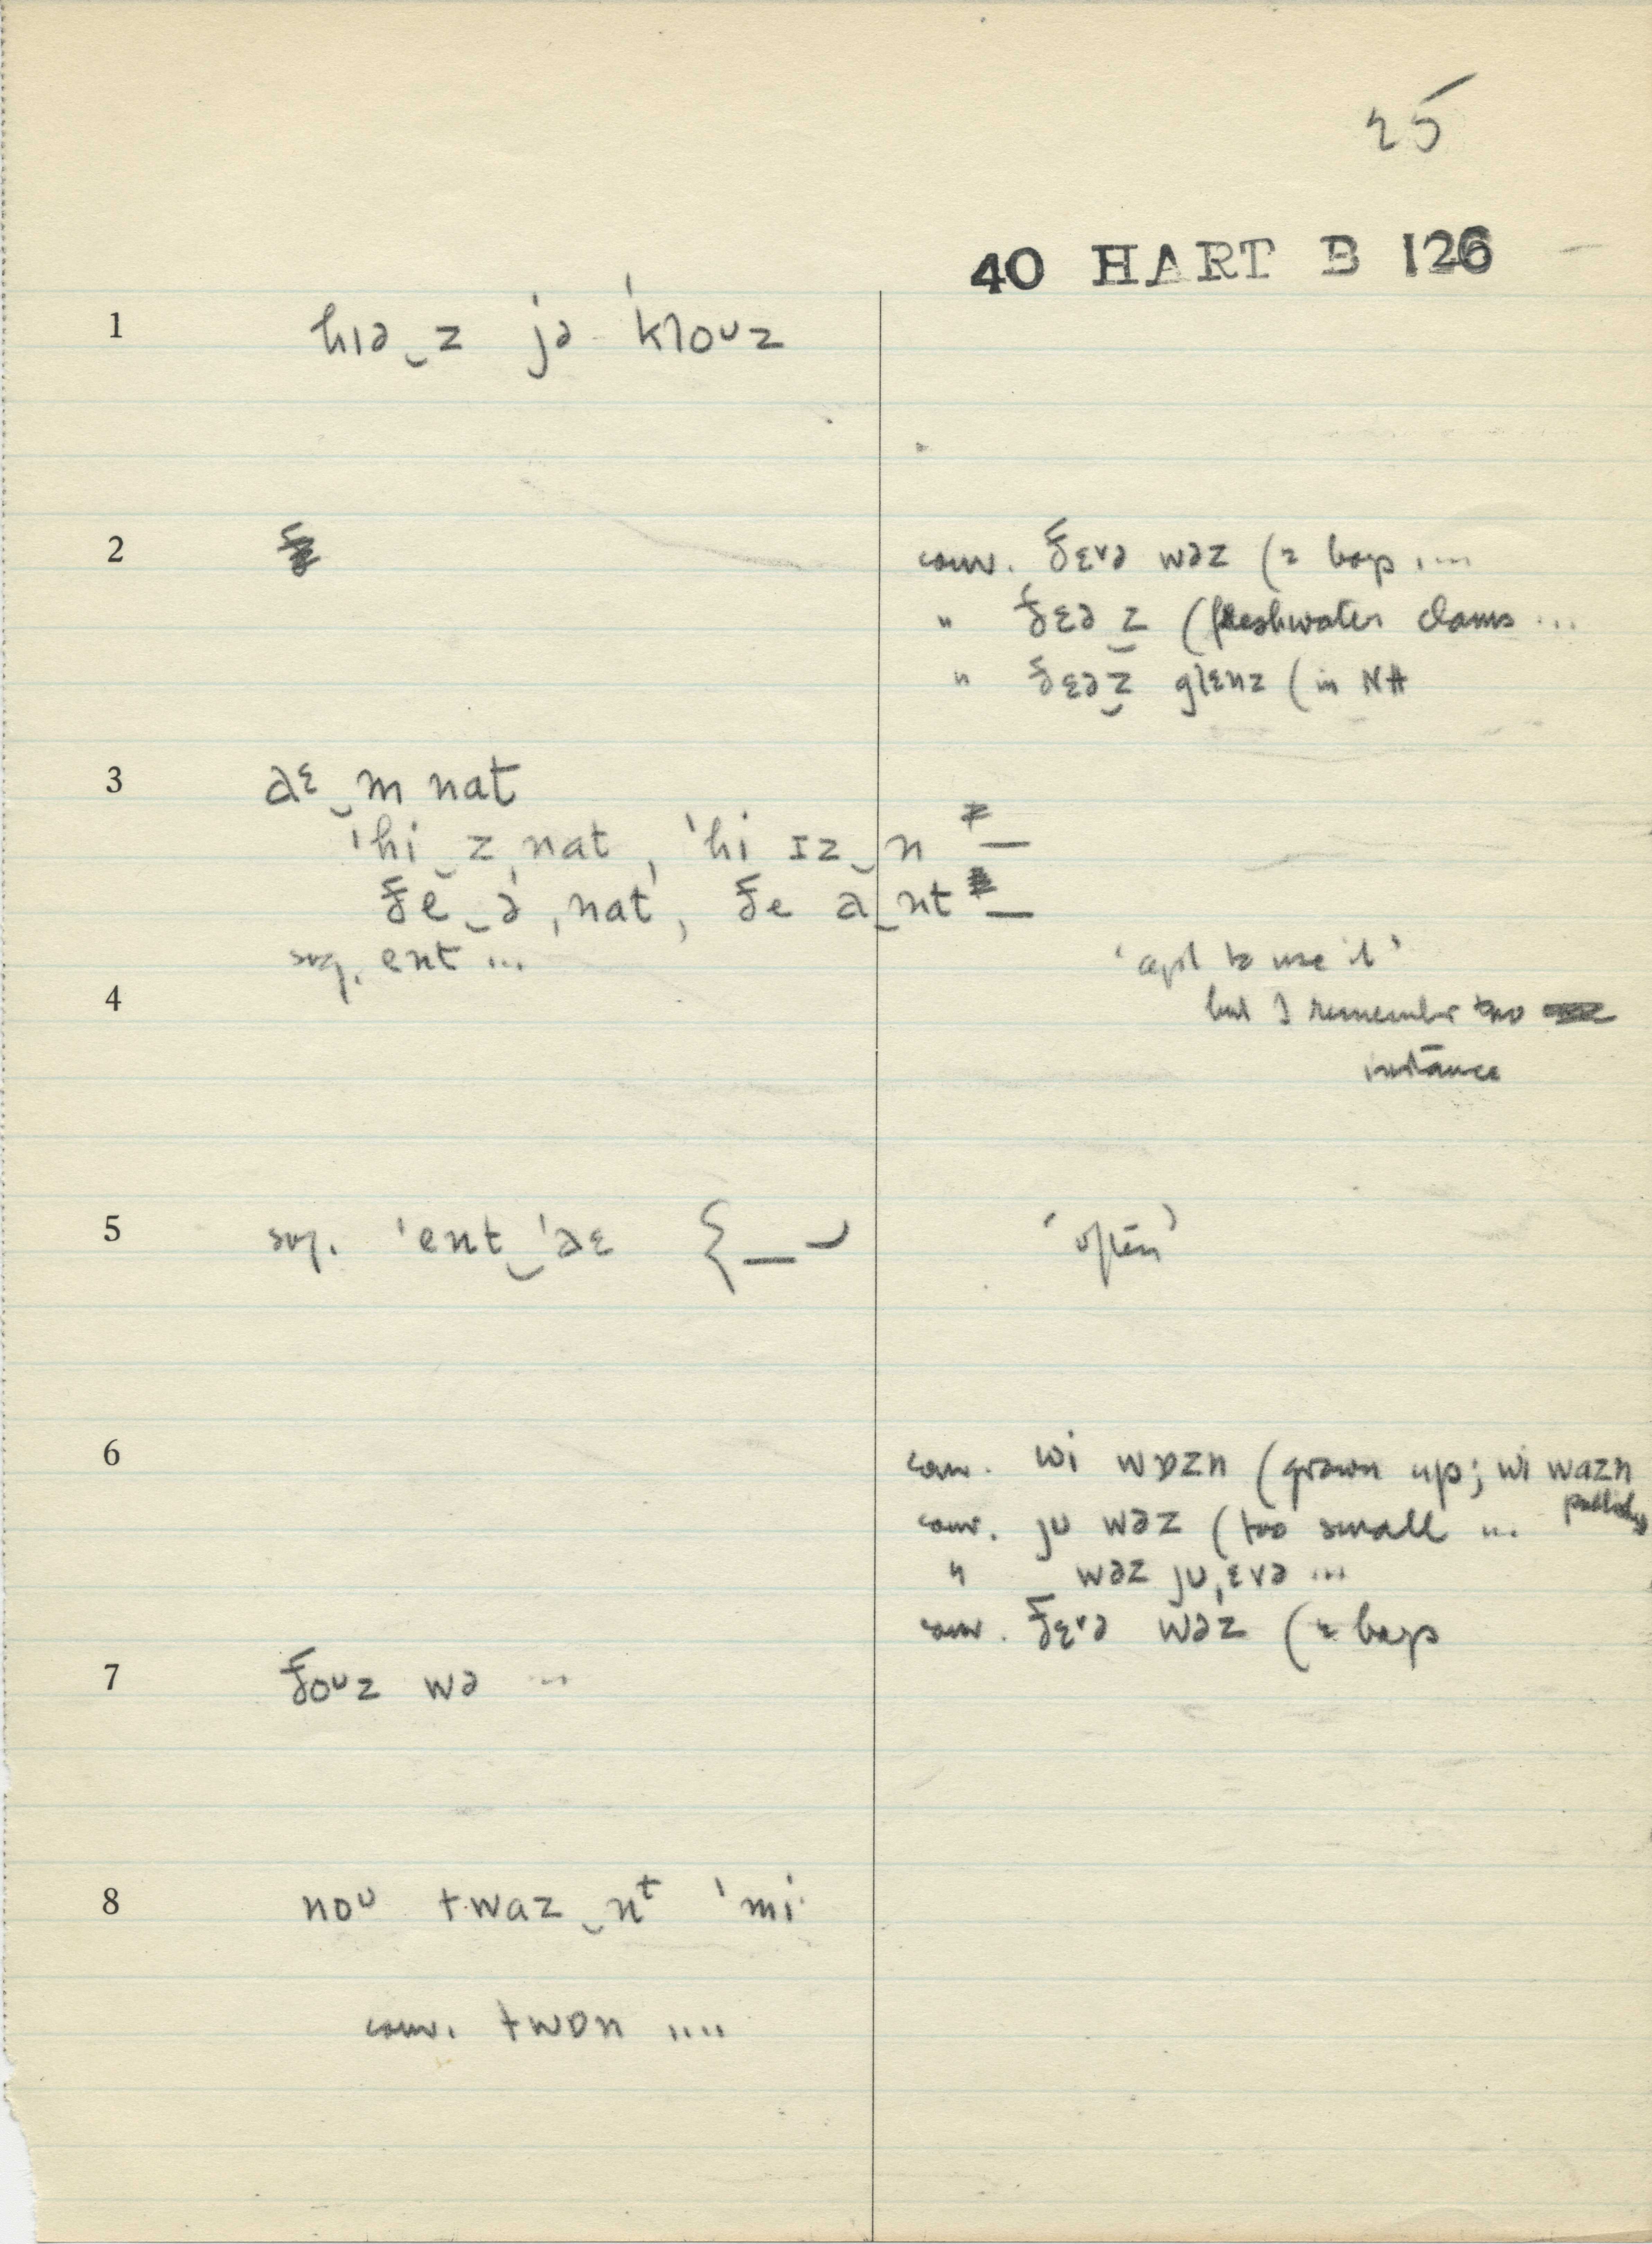 25
40 HART B 126
1 hɪə‿z jə ˈklouz
2 conv. ðɛvə wəz (2 boys ....
" ðɛə z̬ (freshwater clams ...
" ðɛə z̬ glɛnz (in NH
3 aɛ‿m nat
ˈhi‿z ˌnat, ˈhi ɪz‿n —
ðe‿ə ˌnat, ðe a‿nt —
sug. ent ...
4 'apt to use it'
but I remember no
instance
5 sug. ˈent‿ˈaɛ {— 'often'
6 conv. wi wɒzn (grown up; wi wazn
conv. ju wəz (too small ...
" wəz ju ˌɛvə ...
conv. ðɛvə wəz (2 boys
7 ðouz wə ...
8 nou twaz‿nt ˈmi·
conv. twɒn ....